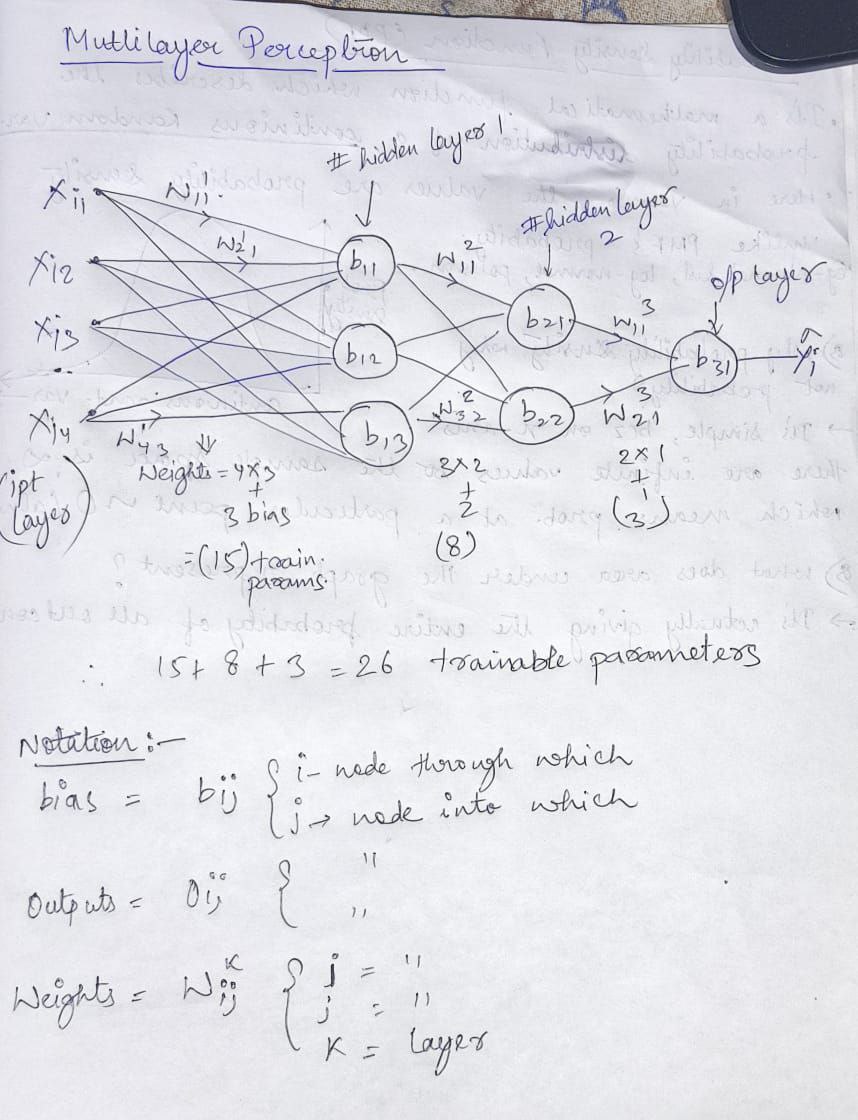 Mutlilayer Perceptron
# hidden layer 1
#hidden layer 2
o/p layer
Xi1
Xi2
Xi3
..
Xi4
W¹11
W¹21
W¹43
b11
b12
b13
W²11
W²32
b21
b22
W³11
W³21
b31
ŷi
(ipt layer)
⇓
Weights = 4x3
+
3 bias
=(15) train.
params.
3x2
+
2
(8)
2x1
+
1
(3)
∴ 15+ 8 + 3 = 26 trainable parameters
Notation :-
bias = bij { i- node through which
j → node into which
Outputs = Oij { "
"
Weights = Wᴷij { j = "
j = "
K = layer